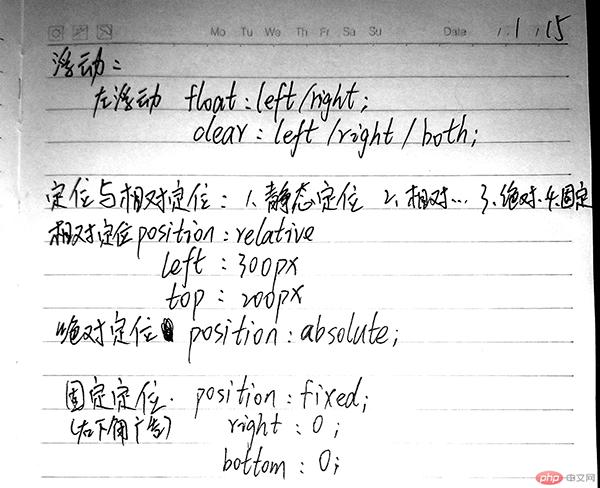 Mo Tu We Th Fr Sa Su Date 1.15
浮动：
左浮动 float：left/right；
clear：left/right/both；
定位与相对定位：1.静态定位 2.相对… 3.绝对.4.固定
相对定位position：relative
left：300px
top：200px
绝对定位 position：absolute；
固定定位. position：fixed；
(右下角广告) right：0；
bottom：0；
php 中文网